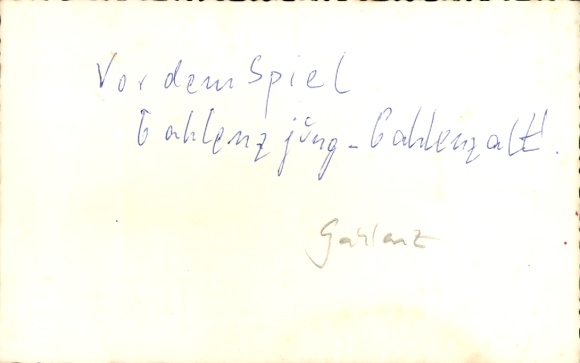 Vor dem Spiel
Gahlenz jüng - Gahlenz alt.
Gahlenz